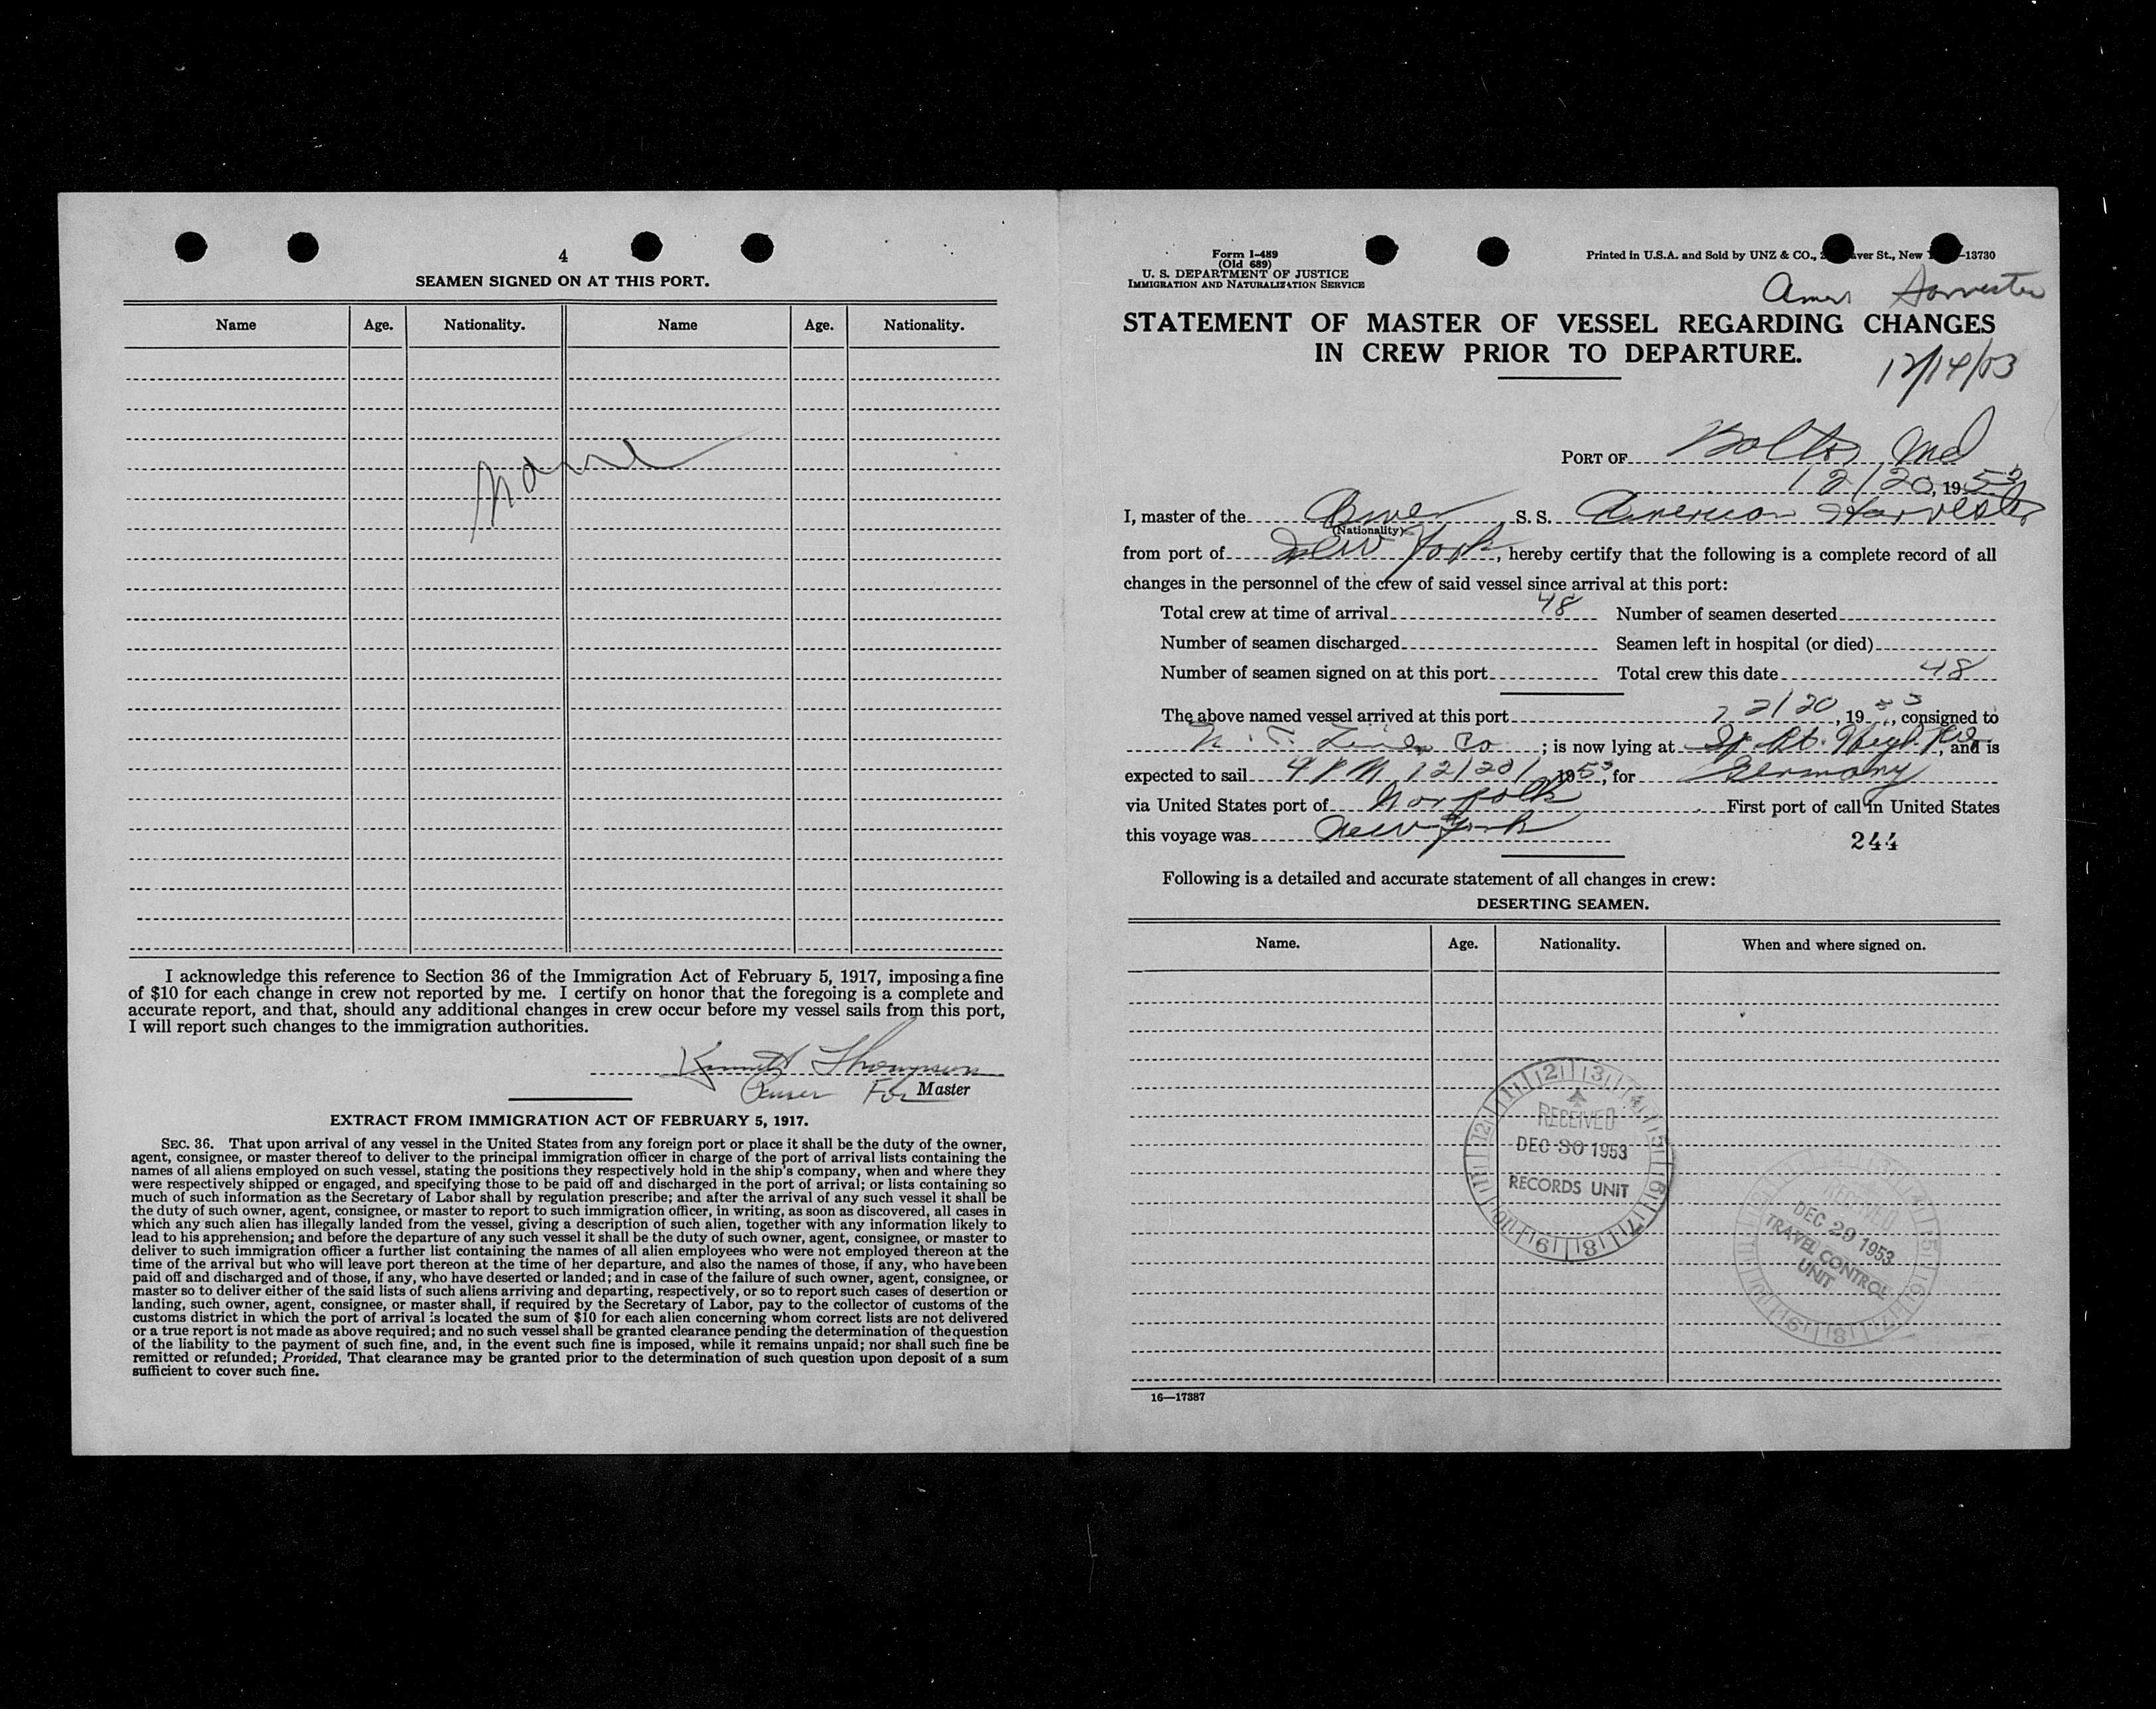 4
SEAMEN SIGNED ON AT THIS PORT.
Name Age. Nationality. Name Age. Nationality.
None
I acknowledge this reference to Section 36 of the Immigration Act of February 5, 1917, imposing a fine
of $10 for each change in crew not reported by me. I certify on honor that the foregoing is a complete and
accurate report, and that, should any additional changes in crew occur before my vessel sails from this port,
I will report such changes to the immigration authorities.
Kenneth Thompson
Purser For Master
EXTRACT FROM IMMIGRATION ACT OF FEBRUARY 5, 1917.
SEC. 36. That upon arrival of any vessel in the United States from any foreign port or place it shall be the duty of the owner,
agent, consignee, or master thereof to deliver to the principal immigration officer in charge of the port of arrival lists containing the
names of all aliens employed on such vessel, stating the positions they respectively hold in the ship's company, when and where they
were respectively shipped or engaged, and specifying those to be paid off and discharged in the port of arrival; or lists containing so
much of such information as the Secretary of Labor shall by regulation prescribe; and after the arrival of any such vessel it shall be
the duty of such owner, agent, consignee, or master to report to such immigration officer, in writing, as soon as discovered, all cases in
which any such alien has illegally landed from the vessel, giving a description of such alien, together with any information likely to
lead to his apprehension; and before the departure of any such vessel it shall be the duty of such owner, agent, consignee, or master to
deliver to such immigration officer a further list containing the names of all alien employees who were not employed thereon at the
time of the arrival but who will leave port thereon at the time of her departure, and also the names of those, if any, who have been
paid off and discharged and of those, if any, who have deserted or landed; and in case of the failure of such owner, agent, consignee, or
master so to deliver either of the said lists of such aliens arriving and departing, respectively, or so to report such cases of desertion or
landing, such owner, agent, consignee, or master shall, if required by the Secretary of Labor, pay to the collector of customs of the
customs district in which the port of arrival is located the sum of $10 for each alien concerning whom correct lists are not delivered
or a true report is not made as above required; and no such vessel shall be granted clearance pending the determination of the question
of the liability to the payment of such fine, and, in the event such fine is imposed, while it remains unpaid; nor shall such fine be
remitted or refunded; Provided, That clearance may be granted prior to the determination of such question upon deposit of a sum
sufficient to cover such fine.
Form I-489
(Old 689)
U. S. DEPARTMENT OF JUSTICE
IMMIGRATION AND NATURALIZATION SERVICE
Printed in U.S.A. and Sold by UNZ & CO., St., New -13730
Amer Harvester
STATEMENT OF MASTER OF VESSEL REGARDING CHANGES
IN CREW PRIOR TO DEPARTURE.
12/14/53
PORT OF Balto Md
12/20, 1953
I, master of the Amer S. S. American Harvester
(Nationality)
from port of New York, hereby certify that the following is a complete record of all
changes in the personnel of the crew of said vessel since arrival at this port:
Total crew at time of arrival 48 Number of seamen deserted
Number of seamen discharged Seamen left in hospital (or died)
Number of seamen signed on at this port Total crew this date 48
The above named vessel arrived at this port 12/20, 1953, consigned to
Lines Co; is now lying at , and is
expected to sail 4 PM 12/20/ 1953, for Germany
via United States port of Norfolk First port of call in United States
this voyage was New York
244
Following is a detailed and accurate statement of all changes in crew:
DESERTING SEAMEN.
Name. Age. Nationality. When and where signed on.
RECEIVED
DEC 30 1953
RECORDS UNIT
RECEIVED
DEC 29 1953
TRAVEL CONTROL
UNIT
16—17387